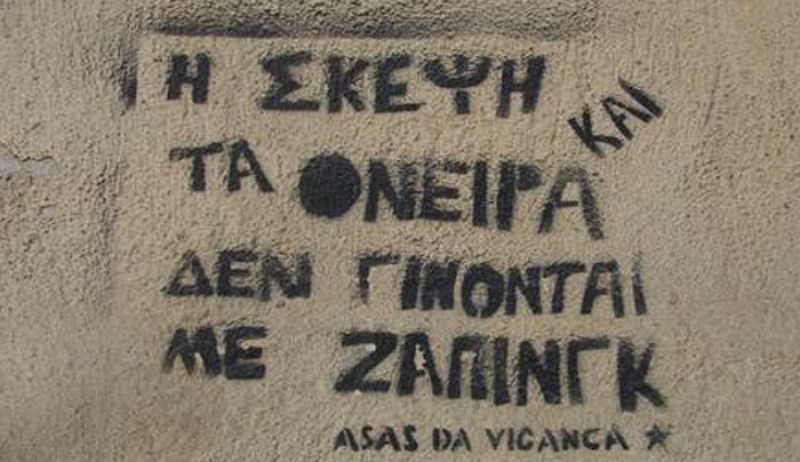 Η ΣΚΕΨΗ ΚΑΙ
ΤΑ ΟΝΕΙΡΑ
ΔΕΝ ΓΙΝΟΝΤΑΙ
ΜΕ ΖΑΠΙΝΓΚ
ASAS DA VIGANCA ★